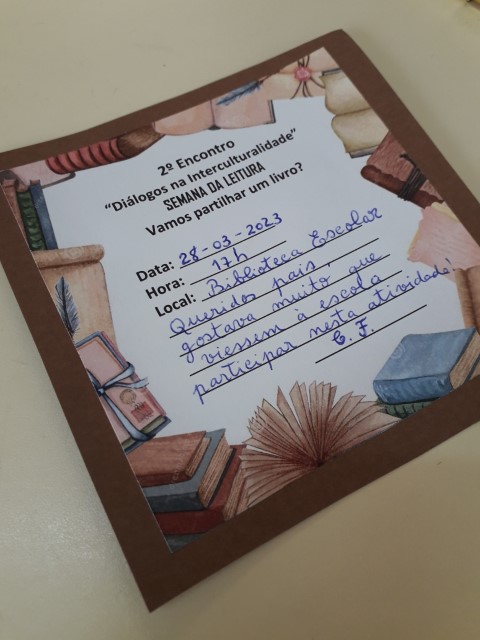 2º Encontro
“Diálogos na Interculturalidade”
SEMANA DA LEITURA
Vamos partilhar um livro?
Data: 28-03-2023
Hora: 17h
Local: Biblioteca Escolar
Queridos pais,
gostava muito que
viessem à escola
participar nesta atividade!
C. F.